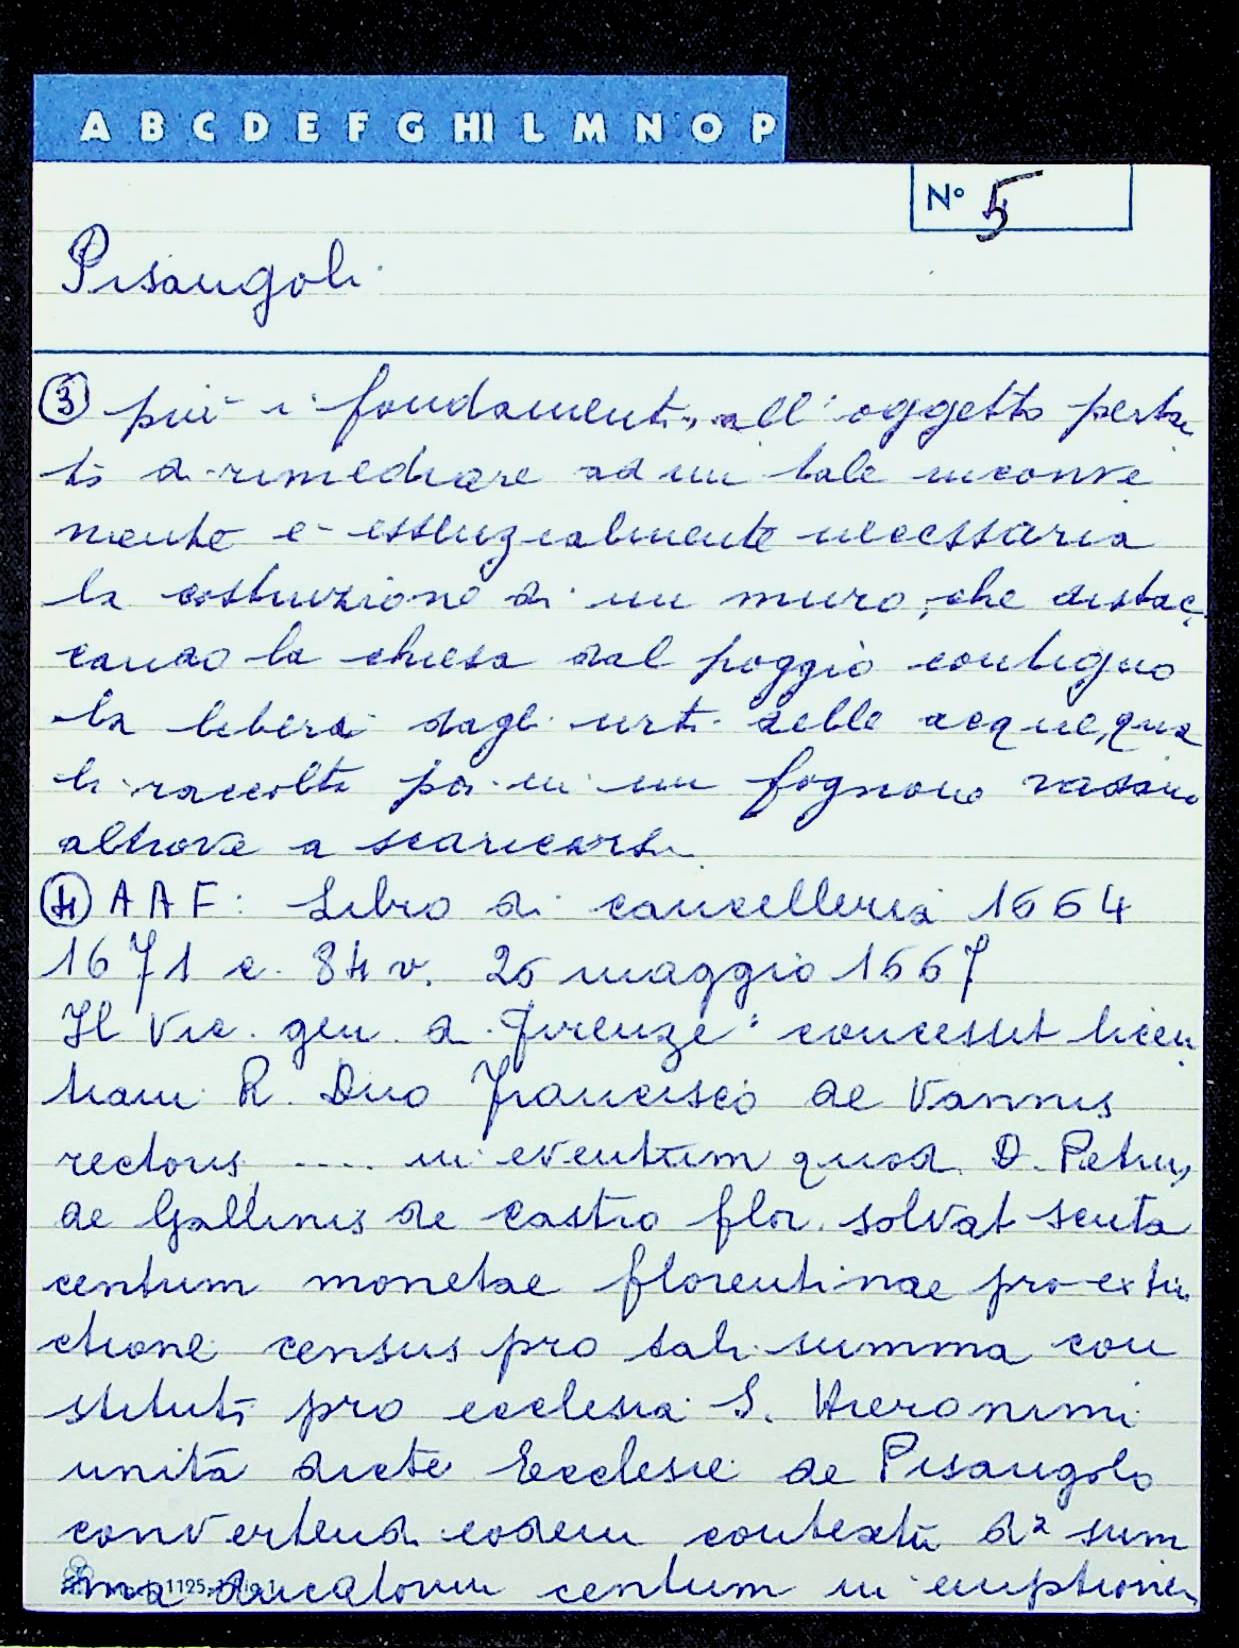 A B C D E F G HI L M N O P
N° 5
Pisangoli
③ più i fondamenti, all'oggetto perta
to di rimediare ad un tale inconve
niente è essenzialmente necessaria
la costruzione di un muro, che distac
cando la chiesa dal poggio contiguo
la liberi dagli urti delle acque, qua
li raccolte poi in un fognone vadano
altrove a scaricarsi.
④ A A F: Libro di cancelleria 1664
1671 c. 84 v. 26 maggio 1667
Il Vic. gen. di Firenze: concessit licen
tiam R. Dno Francisco de Vannis
rectoris .... in eventum quod D. Petrus
de Gallinis de Castro flor. solvat scuta
centum monetae florentinae pro extin
ctione census pro tali summa con
stituti pro ecclesia S. Hieronimi
unita dicte Ecclesie de Pisangolo
convertendi eodem contextu da sum
ma ducatorum centum in emptionem
1125